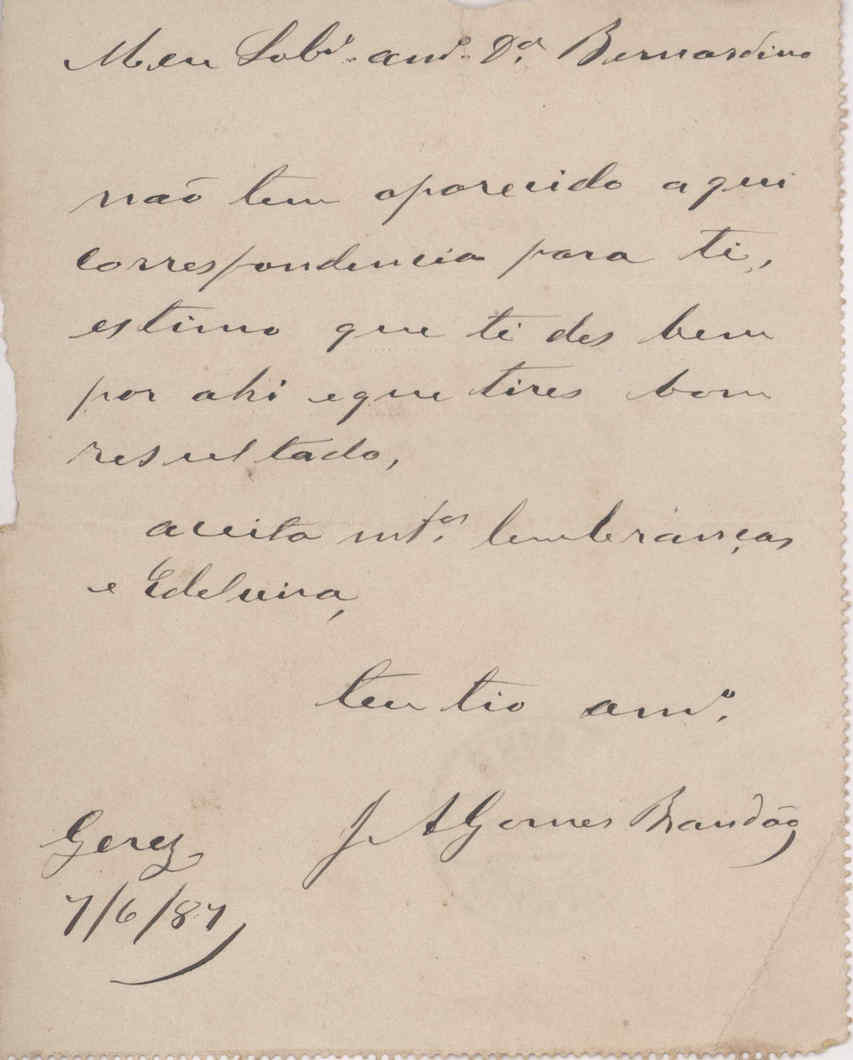 Meu Sobº. amº. Dor. Bernardino
não tem aparecido aqui
correspondencia para ti,
estimo que ti des bem
por ahi e que tires bom
resultado,
aceita mtas. lembranças
e Edelvira,
teu tio amº.
J A Gomes Brandão
Gerez
7/6/87